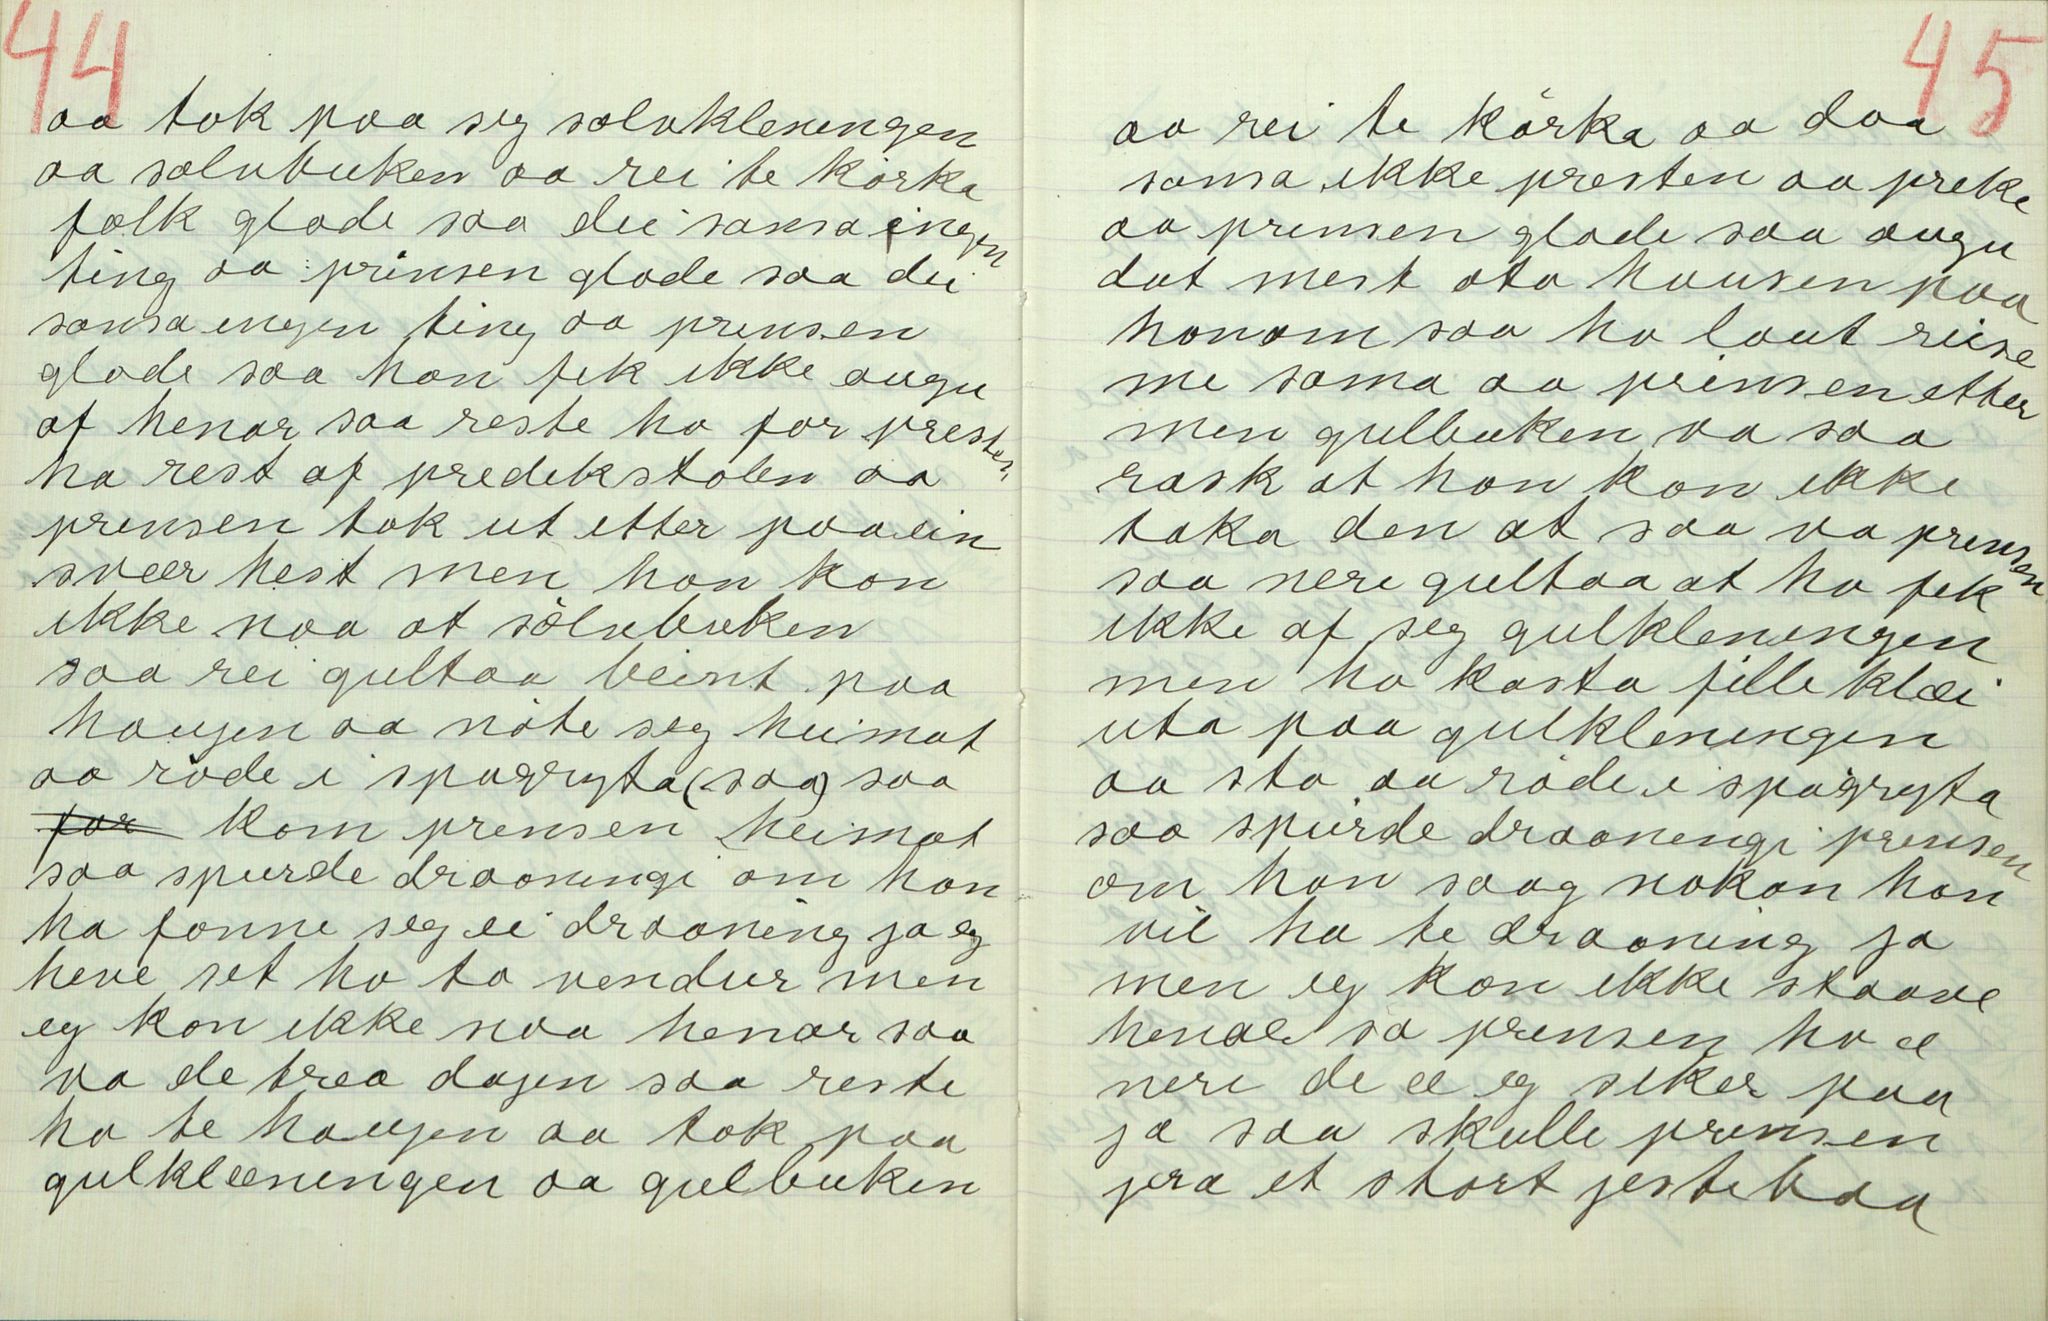 44
aa tok paa seg sølvkleningen
aa sølvbuken aa rei te kórka
folk glode saa dei sansa ingen
ting aa prinsen glode saa dei
sansa ingen ting aa prinsen
glode saa han fek ikke augu
af henar saa reste ho for presten
ha rest af predikstolen aa
prinsen tok ut etter paa ein
sveer hest men han kan
ikke naa at sölvbuken
saa rei gultaa beint paa
haugen aa nöte seg heimat
aa röde i spagryta (saa) saa
for kom prinsen heimat
saa spurde draaningi om han
ha fonne seg ei drааning ja eg
heve set ho to vendur men
eg kan ikke naa henar saa
va de trea dagen saa reste
ho te haugen aa tok paa
gulkleeningen aa gulbuken
45
aa rei te kórka aa daa
sansa ikke presten aa preke
aa prinsen glode saa augu
dat mest ota hausen paa
honom saa ho laut reise
me sama aa prinsen etter
men gulbuken va saa
rask at han kan ikke
taka den at saa va prinsen
saa nere gultaa at ho fek
ikke af seg gulkleningen
men ho kasta fille klæi
uta paa gulkleningen
aa sto aa röde i spagryta
saa spurde draaningi prinsen
om han saag nokon han
vil ha te draaning ja
men eg kan ikke staave
henar sa prinsen ho æ
nere de æ eg siker paa
ja saa skulle prinsen
jera et stort jestebaa